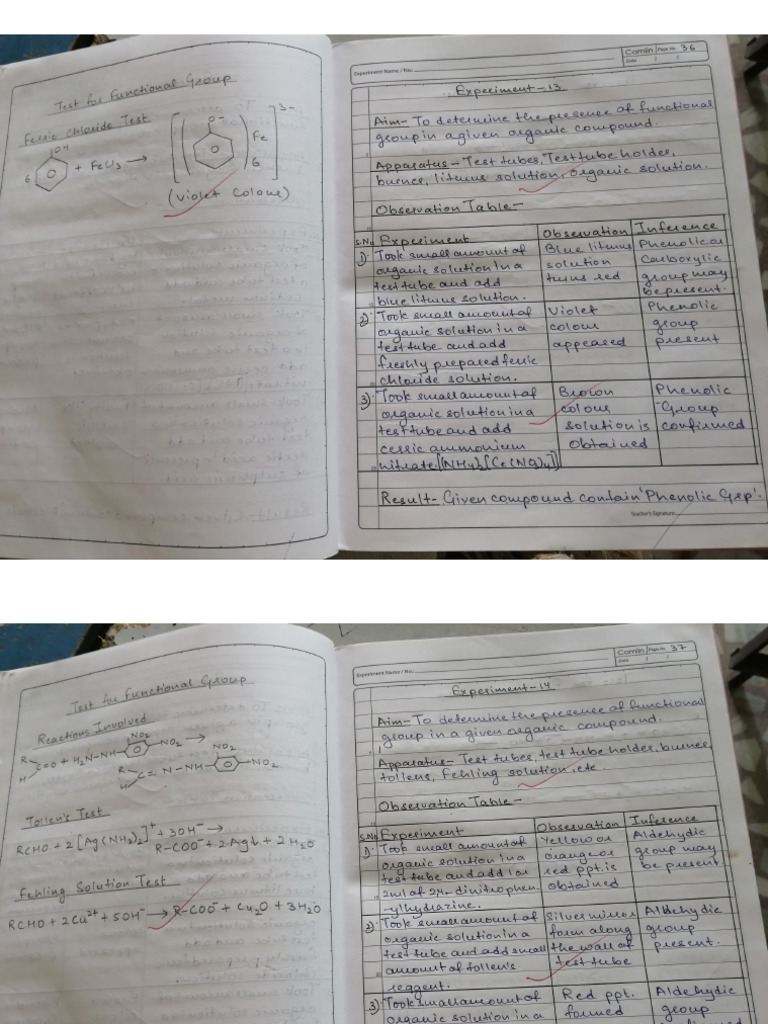 Test for Functional Group
Ferric Chloride Test
OH
6 + FeCl3 →
O-
Fe
6
3-
(Violet Colour)
Experiment Name / No.:
Comlin Page No. 36
Date / /
Experiment-13
Aim- To determine the presence of functional
group in a given organic compound.
Apparatus- Test tubes, Test tube holder,
burner, litmus solution, organic solution.
Observation Table-
S.No Experiment Observation Inference
1) Took small amount of Blue litmus Phenolic or
organic solution in a solution Carboxylic
test tube and add turns red group may
blue litmus solution. be present.
2) Took small amount of Violet Phenolic
organic solution in a colour group
test tube and add appeared present
freshly prepared ferric
chloride solution.
3) Took small amount of Brown Phenolic
organic solution in a colour Group
test tube and add solution is confirmed
cerric ammonium obtained
nitrate
Result- Given compound contain 'Phenolic Grp'.
Teacher's Signature
Test for Functional Group
Reactions Involved
R
C=O + H2N-NH- NO2 -NO2 →
H
R
C=N-NH- NO2 -NO2
H
Tollen's Test
RCHO + 2[Ag(NH3)2]+ + 3OH- →
R-COO- + 2Ag↓ + 2H2O
Fehling Solution Test
RCHO + 2Cu2+ + 5OH- → R-COO- + Cu2O + 3H2O
Experiment Name / No.:
Comlin Page No. 37
Date / /
Experiment-14
Aim- To determine the presence of functional
group in a given organic compound.
Apparatus- Test tubes, test tube holder, burner,
tollens, Fehling solution, etc
Observation Table-
S.No Experiment Observation Inference
1) Took small amount of Yellow or Aldehydic
organic solution in a orange or group may
test tube and add 1 or red ppt. is be present
2ml of 2,4-dinitrophen obtained
-ylhydrazine.
2) Took small amount of Silver mirror Aldehydic
organic solution in a form along group
test tube and add small the wall of present.
amount of tollen's test tube
reagent.
3) Took small amount of Red ppt. Aldehydic
organic solution in a formed group